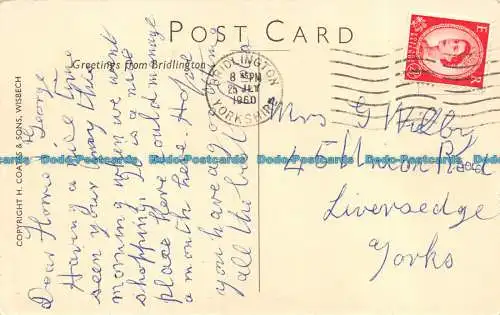 POST CARD
Greetings from Bridlington
COPYRIGHT H. COATES & SONS, WISBECH
BRIDLINGTON
8 PM
25 JLY
1960
YORKSHIRE
E R
Dear
George
Having a nice time
seen your way this
morning when we went
shopping. It is a nice
place here could manage
a month here. Hope
you have a good
all the best
Mrs G Wilby
45 Union Road
Liversedge
Yorks
Postcards-Data